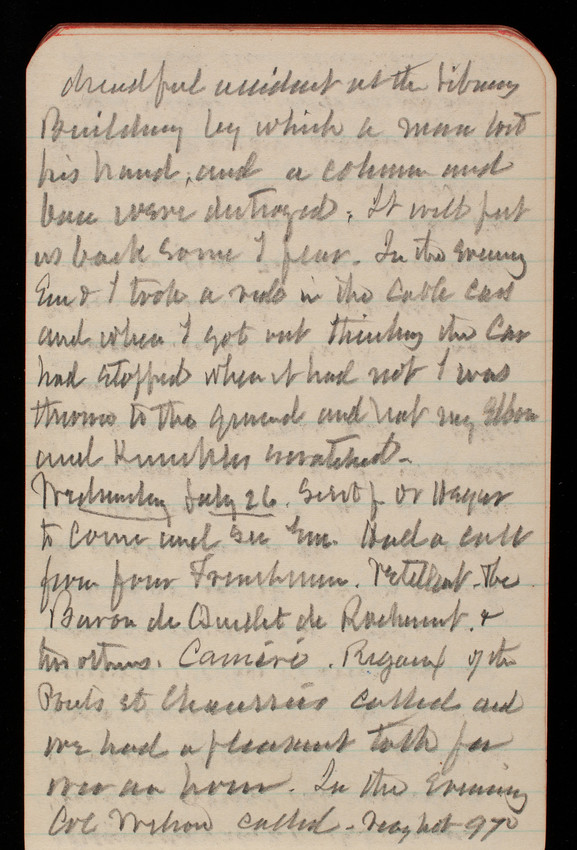 dreadful accident at the Library
Building by which a man lost
his hand, and a column and
base were destroyed. It will put
us back some I fear. In the evening
Em & I took a ride in the Cable Cars
and when I got out thinking the Car
had stopped when it had not I was
thrown to the ground and had my Elbow
and Knuckles scratched.
Wednesday July 26. Sent for Dr Hagar
to come and see Em. Had a call
from four Frenchmen. the
Baron de de Rochemont. &
two others. Camere. Rigaux of the
Ponts et Chaussees called and
we had a pleasant talk for
over an hour. In the Evening
Col Wilson called - very hot 97°